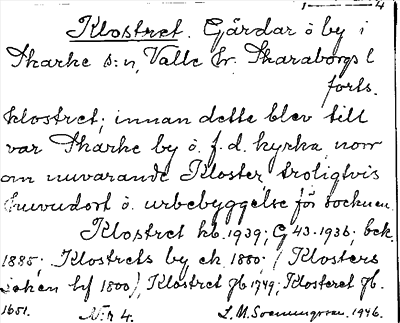 1 4
Klostret. Gårdar o by i
Skarke s:n, Valle hr. Skaraborgs l
forts.
Klostret; innan detta blev till
var Skarke by o. f.d. kyrka norr
om nuvarande Kloster, troligtvis
huvudort o. urbebyggelse för socknen.
Klostret hb. 1939; G 43-1936; bek.
1885; Klostrets by ek 1880; / Klosters
hf 1800), Klostret jb 1749; Klosteret jb.
1651. N:r 4. 1946.